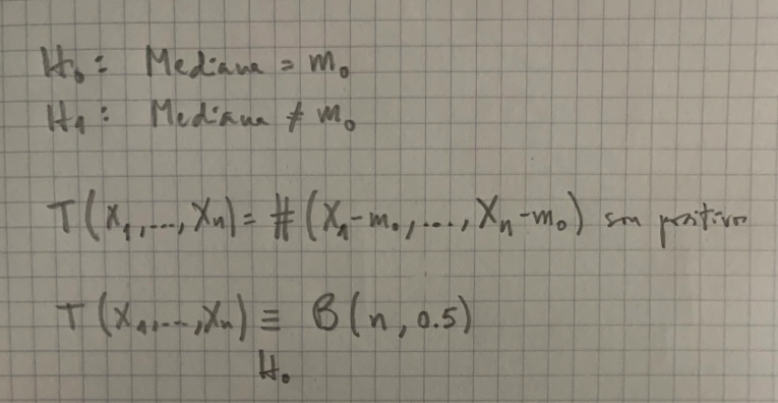 H₀: Mediana = m₀
H₁: Mediana ≠ m₀
T(X₁,...,Xₙ) = #(X₁-m₀,...,Xₙ-m₀) son positivos
T(X₁,...,Xₙ) ≡ B(n, 0.5)
H₀